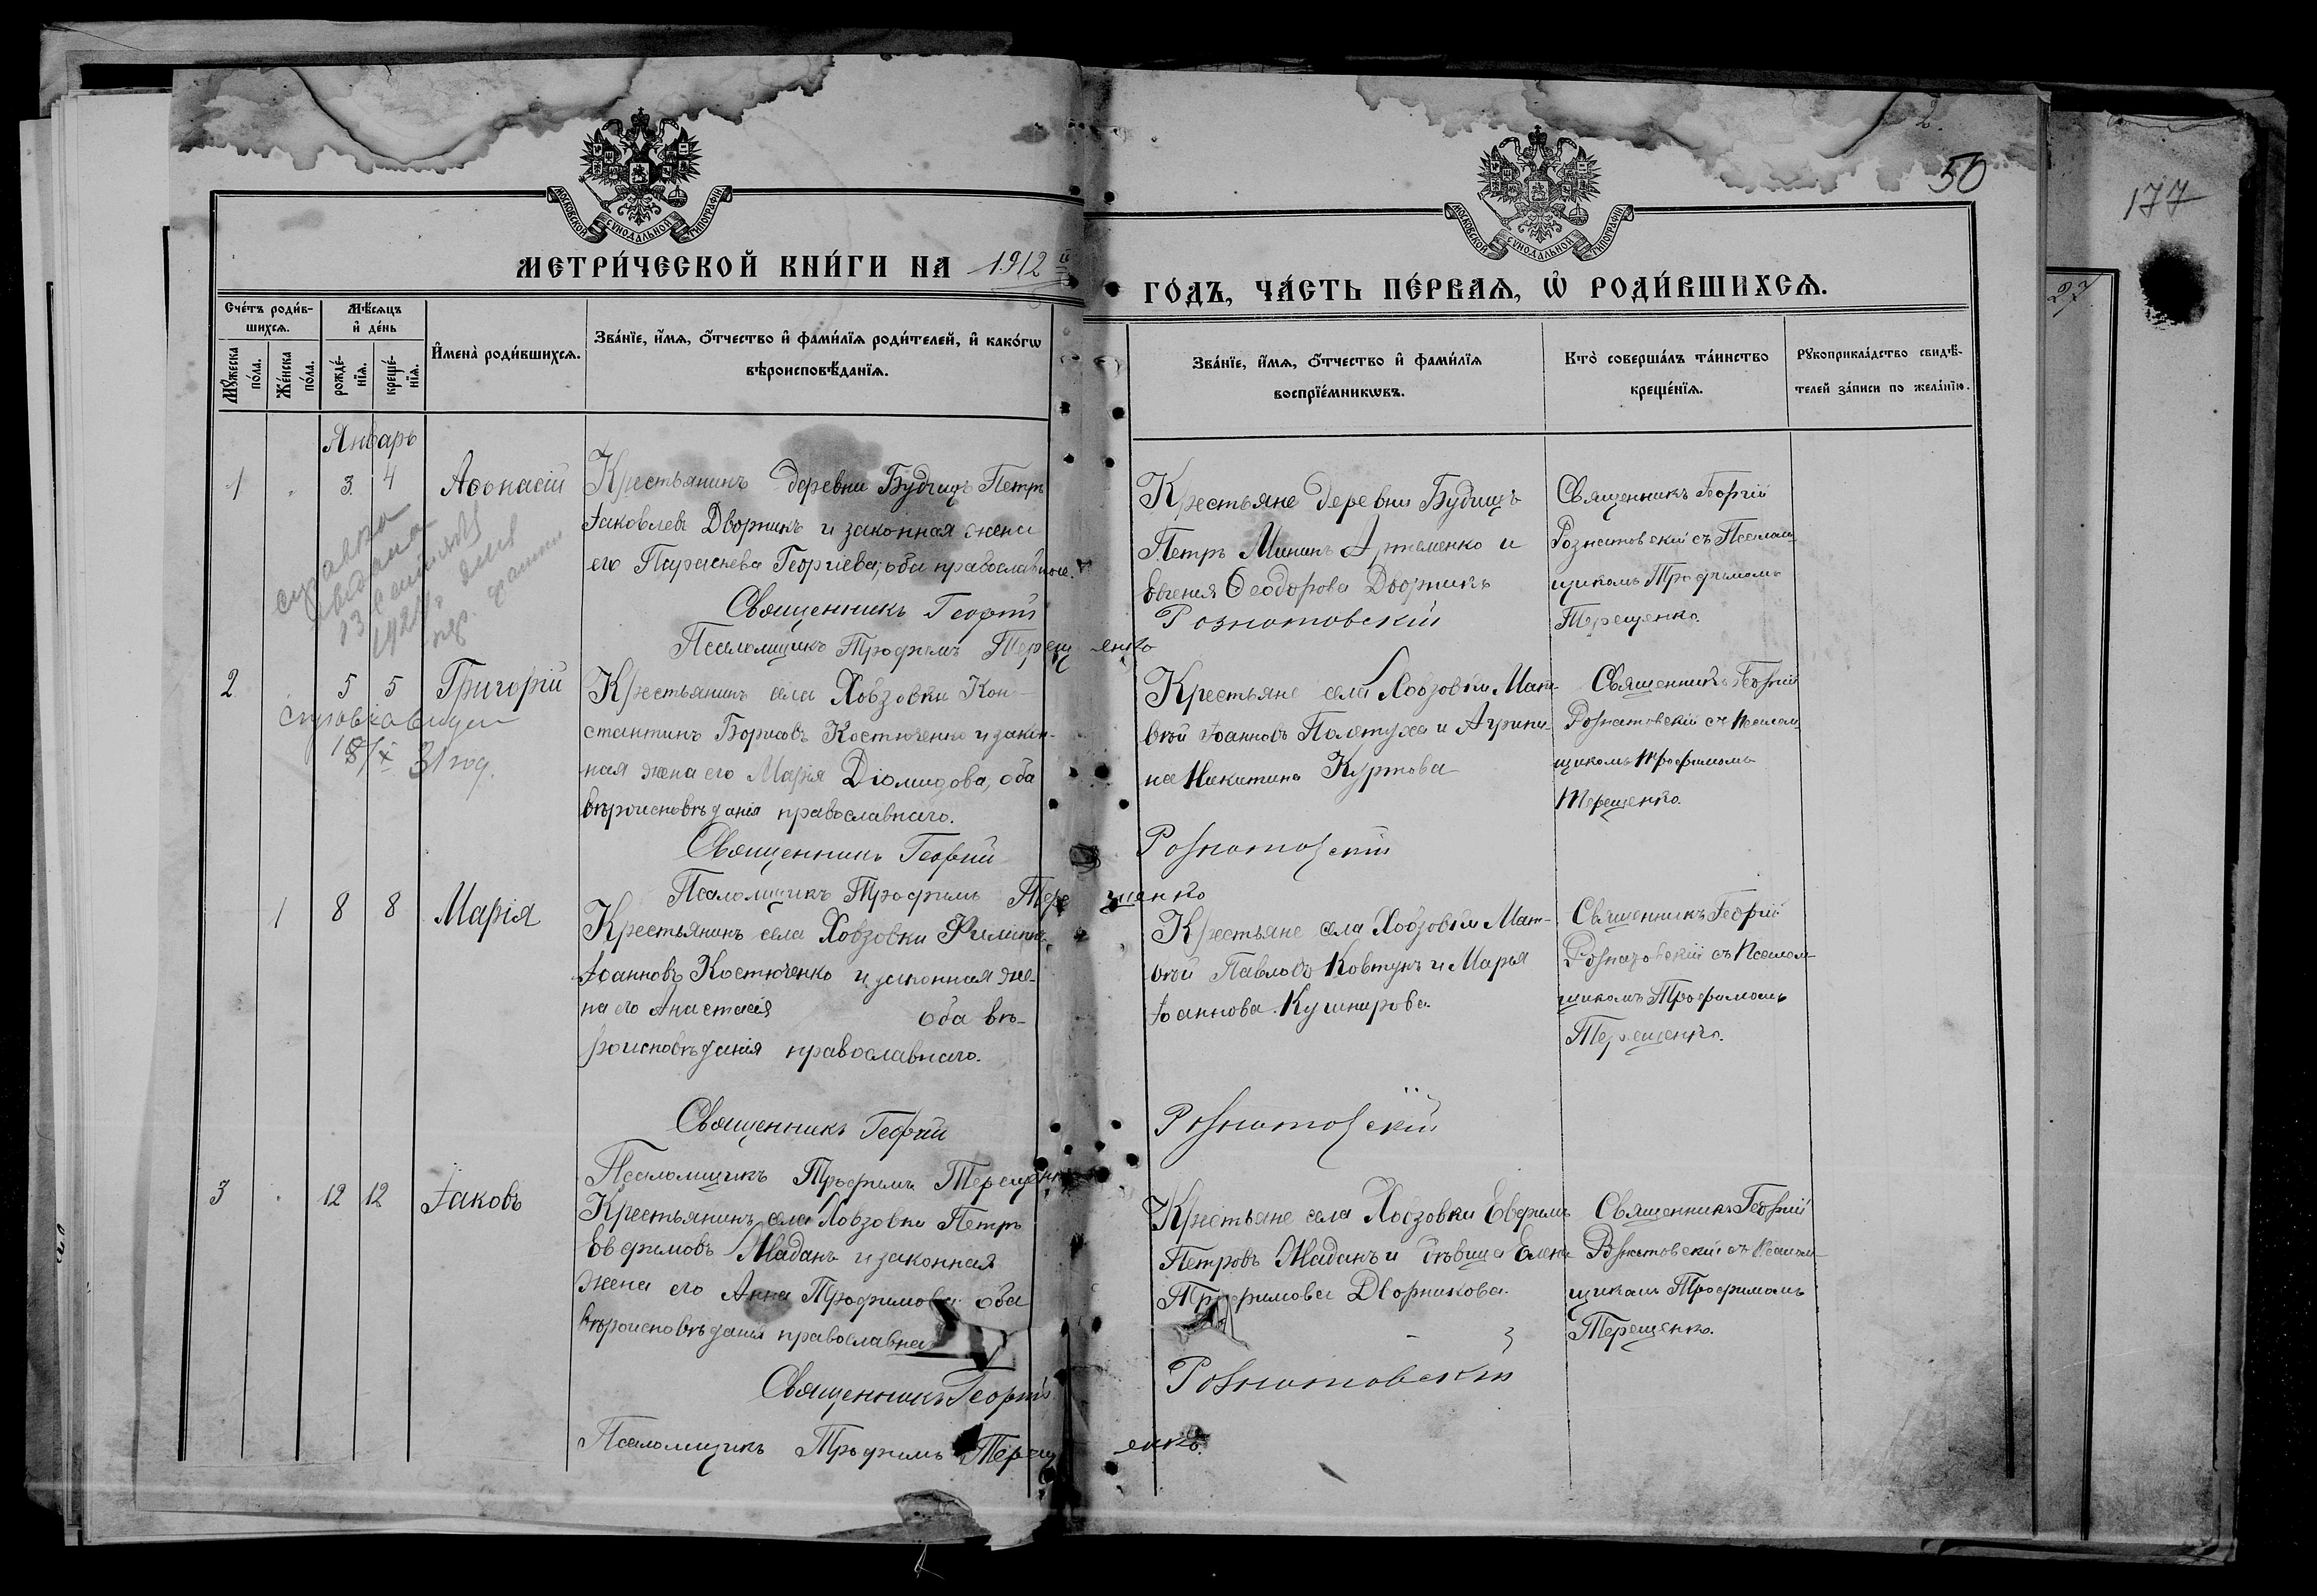 2.
50
177
27
МОСКОВСКОЙ СѴНОДАЛЬНОЙ ТИПОГРАФІИ
МОСКОВСКОЙ СѴНОДАЛЬНОЙ ТИПОГРАФІИ
МЕТРИ́ЧЕСКОЙ КНИ́ГИ НА 1912 й
ГО́ДЪ, ЧА́СТЬ ПЕ́РВАѦ, Ѡ҆ РОДИ́ВШИХСѦ.
Сче́тъ роди́в-
шихсѧ.
Мѣ́сѧцъ
и҆ де́нь
Мꙋ́жеска
по́ла.
Же́нска
по́ла.
рожде́-
нїѧ.
креще́-
нїѧ.
И҆мена̀ роди́вшихсѧ.
Зва́нїе, и҆́мѧ, ѻ҆́тчество и҆ фами́лїѧ роди́телей, и҆ како́гѡ
вѣроисповѣ́данїѧ.
Зва́нїе, и҆́мѧ, ѻ҆́тчество и҆ фами́лїѧ
воспрїе́мникѡвъ.
Кто̀ соверша́лъ та́инство
креще́нїѧ.
Рꙋкоприкла́дство свидѣ́-
телей за́писи по жела́нїю.
Январь
1
3
4
Аѳонасій
Крестьянинъ деревни Будищъ Петръ
Іаковлевъ Дворникъ и законная жена
его Параскева Георгіева, оба православные.
Священникъ Георгій Рознатовскій
Псаломщикъ Трофимъ Терещенко
Крестьяне деревни Будищъ
Петръ Мининъ Артеменко и
Евгенія Ѳеодорова Дворникъ
Священникъ Георгій
Рознатовскій съ Псалом-
щикомъ Трофимомъ
Терещенко.
справка
выдана
13
192
для
2
5
5
Григорій
справка выдан
18/X 31 год.
Крестьянинъ села Ховзовки Кон-
стантинъ Борисовъ Костюченко и закон-
ная жена его Марія Діомидова, оба
вѣроисповѣданія православнаго.
Священникъ Георгій Рознатовскій
Псаломщикъ Трофимъ Терещенко
Крестьяне села Ховзовки Мат-
вѣй Іоанновъ Полетуха и Агрипи-
на Никитина Куртова
Священникъ Георгій
Рознатовскій съ Псалом-
щикомъ Трофимомъ
Терещенко.
1
8
8
Марія
Крестьянинъ села Ховзовки Филиппъ
Іоанновъ Костюченко и законная же-
на его Анастасія оба вѣ-
роисповѣданія православнаго.
Священникъ Георгій Рознатовскій
Псаломщикъ Трофимъ Терещенко
Крестьяне села Ховзовки Мат-
вѣй Павловъ Ковтунъ и Марья
Іоаннова Кушнирова
Священникъ Георгій
Рознатовскій съ Псалом-
щикомъ Трофимомъ
Терещенко.
3
12
12
Іаковъ
Крестьянинъ села Ховзовки Петръ
Евфимовъ Жаданъ и законная
жена его Анна Трофимова оба
вѣроисповѣданія православна
Священникъ Георгій Рознатовскій
Псаломщикъ Трофимъ Терещенко.
Крестьяне села Ховзовки Евфимъ
Петровъ Жаданъ и дѣвица Елена
Трофимова Дворникова.
Священникъ Георгій
Рознатовскій съ Псалом-
щикомъ Трофимомъ
Терещенко.